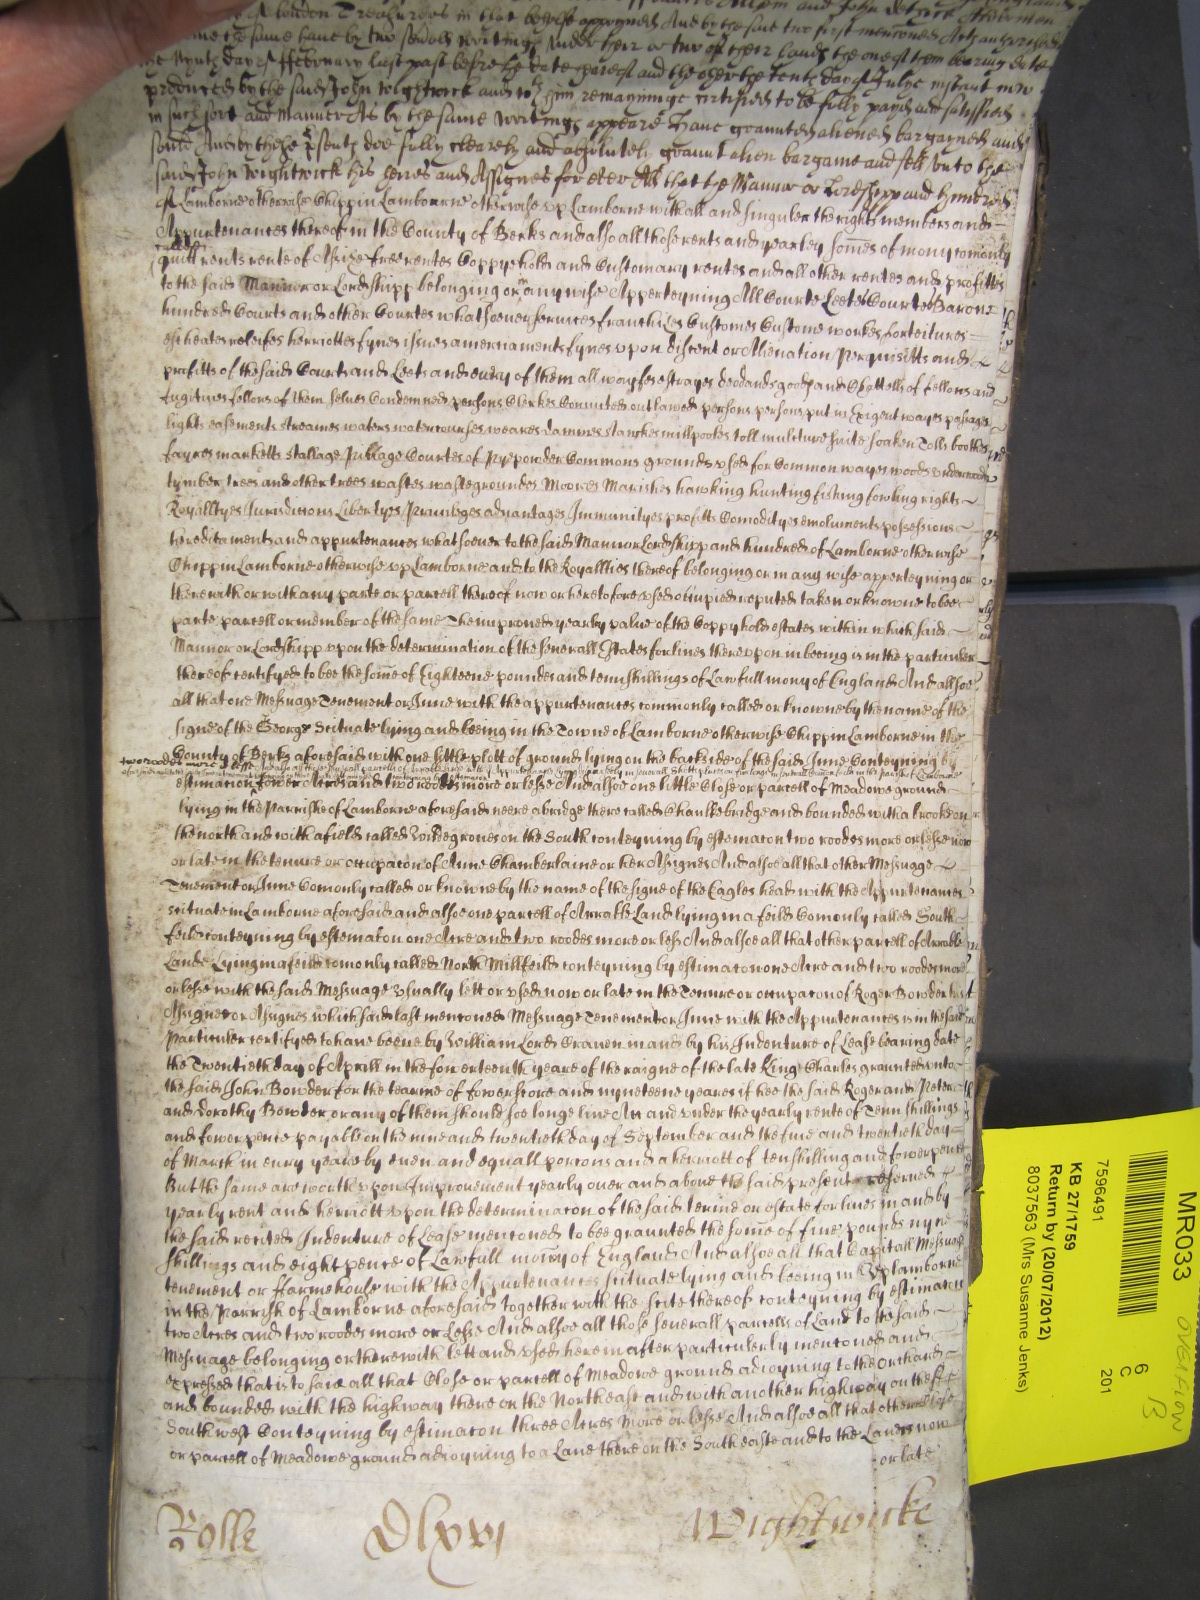 of London Treasurers in that behalfe appoynted And by the said two first mentioned Acts authorised
the same have by two severall writings under their or two of their hands the one of them bearing date
the Nynth day of ffebruary last past before the date hereof and the other the tenth day of Julye instant now
produced by the said John Wightwick and with him remayninge certified to be fully payd and satisfied
in such sort and manner As by the same writings appeare Have graunted aliened bargayned and
sould And by these presents doe fully clearely and absolutely graunt alien bargaine and sell unto the
said John Wightwick his heires and Assignes for ever All that the Mannor or Lordshipp and hundred
of Lamborne otherwise Chippin Lamborne otherwise up Lamborne with all and singuler the rights members and
Appurtenances thereof in the County of Berks and alsoe all those rents and yearley somes of mony comonly
called
quitt rents rente of Assize free rentes Coppyehold and Customary rentes and all other rentes and profitts
to the said Mannor or Lordshipp belonging or in any wise Apperteyning All Courte Leetes Courte Barons
hundred Courts and other Courtes whatsoever services franchizes Customes Custome workes forfeitures
escheates releifes herriottes fynes issues amerciaments fynes upon discent or Alienation Perquisitts and
profitts of the said Courts and Leets and every of them all wayfes estrayes deodands goods and Chattells of fellons and
fugitives fellons of them selves Condemned persons Clerkes Convicted outlawed persons persons put in Exigent wayes passages
lights easements streames waters watercourses weares dammes stanckes millpooles toll mulcture suite soaken Tolls boothes
fayres marketts stallage Pickage Courtes of Pyepowder Commons grounds used for Common wayes woods underwoods
tymber trees and other trees wastes waste groundes Moores Marishes hawking hunting fishing fowling rights
Royalltyes Jurisdictions Libertyes Priviledges advantages Immunityes profitts Comodityes emoluments possessions
hereditaments and appurtenances whatsoever to the said Mannor Lordshipp and hundred of Lamborne otherwise
Chippin Lamborne otherwise up Lamborne and to the Royallties thereof belonging or in any wise apperteyning or
therewith or with any parte or parcell thereof now or heretofore used occupied reputed taken or knowne to bee
parte parcell or member of the same The improved yearly value of the Coppyhold estates within which said
Mannor or Lordshipp upon the determination of the severall Estates for lives thereupon in beeing is in the particuler
thereof certifyed to bee the some of Eighteene poundes and tenn shillings of Lawfull mony of England And allsoe
all that one Messuage Tenement or Inne with the appurtenances commonly called or knowne by the name of the
signe of the George Scituate lying and beeing in the Towne of Lamborne otherwise Chippin Lamborne in the
County of Berks aforesaid with one little plott of ground lying on the backside of the said Inne Conteyning by
two roodes more or lesse
estimation fower Acres and two roodes more or lesse And alsoe one little Close or parcell of Meadowe ground
lying in the Parrishe of Lamborne aforesaid neere a bridge there called Chaulkebridge and bounded with a brooke on
the north and with a field called on the South conteyning by estemacon two roodes more or lesse now
or late in the tenure or occupacon of Anne Chamberlaine or her Assignes And alsoe all that other Messuage
Tenement or Inne Comonly called or knowne by the name of the signe of the Eagles head with the Appurtenances
scituate in Lamborne aforesaid and alsoe one parcell of Arrable Land lying in a feild Comonly called South
feild conteyning by estemacon one Acre and two roodes more or less And alsoe all that other parcell of Arrable
Lande Lying in a feild comonly called North Millfeild conteyning by estimacon one Acre and two roodes more
or lesse with the said Messuage usually lett or used now or late in the Tenure or occupacon of Roger Bowder his
Assignee or Assignes which said last mentioned Messuage Tenement or Inne with the Appurtenances is in the said
Particuler certifyed to have beene by William Lord Craven in and by his Indenture of Lease bearing date
the Twentieth day of Aprill in the fowerteenth yeare of the raigne of the late King Charles graunted unto
the said John Bowder for the tearme of fowerscore and nyneteene yeares if hee the said Roger and Peter
and Dorothy Bowder or any of them should soe longe live Att and under the yearly rente of Tenn shillings
and fower pence payable on the nine and twentieth day of September and the five and twentieth day
of March in every yeare by even and equall porcons and a herriott of ten shilling and fower pence
But the same are worth upon Improvement yearly over and above the said present reserved
yearly rent and herriott upon the determinacon of the said terme or estate for lives in and by
the said recited Indenture of Lease mentioned to bee graunted the some of five pounds nyne
shillings and eight pence of Lawfull mony of England And alsoe all that Capitall Messuage
tenement or ffarmehouse with the Appurtenances scituate lying and beeing in Uplamborne
in the Parrish of Lamborne aforesaid together with the scite thereof conteyning by estimacon
two Acres and two roodes more or Lesse And alsoe all those severall parcells of Land to the said
Messuage belonging or therewith lett and used herein after particulerly mentioned and
expressed that is to saie all that Close or parcell of Meadowe ground adioyning to the orchard
and bounded with the highway there on the North east and with another highway on the
Southwest Conteyning by estimacon three Acres More or lesse And alsoe all that other Close
or parcell of Meadowe ground adioyning to a Lane there on the South easte and to the Lands now
or late
Rolle Dlxvj Wightwicke
MR033
OVERFLOW
13
7596491
6
C
201
KB 27/1759
Return by (20/07/2012)
8037563 (Mrs Susanne Jenks)